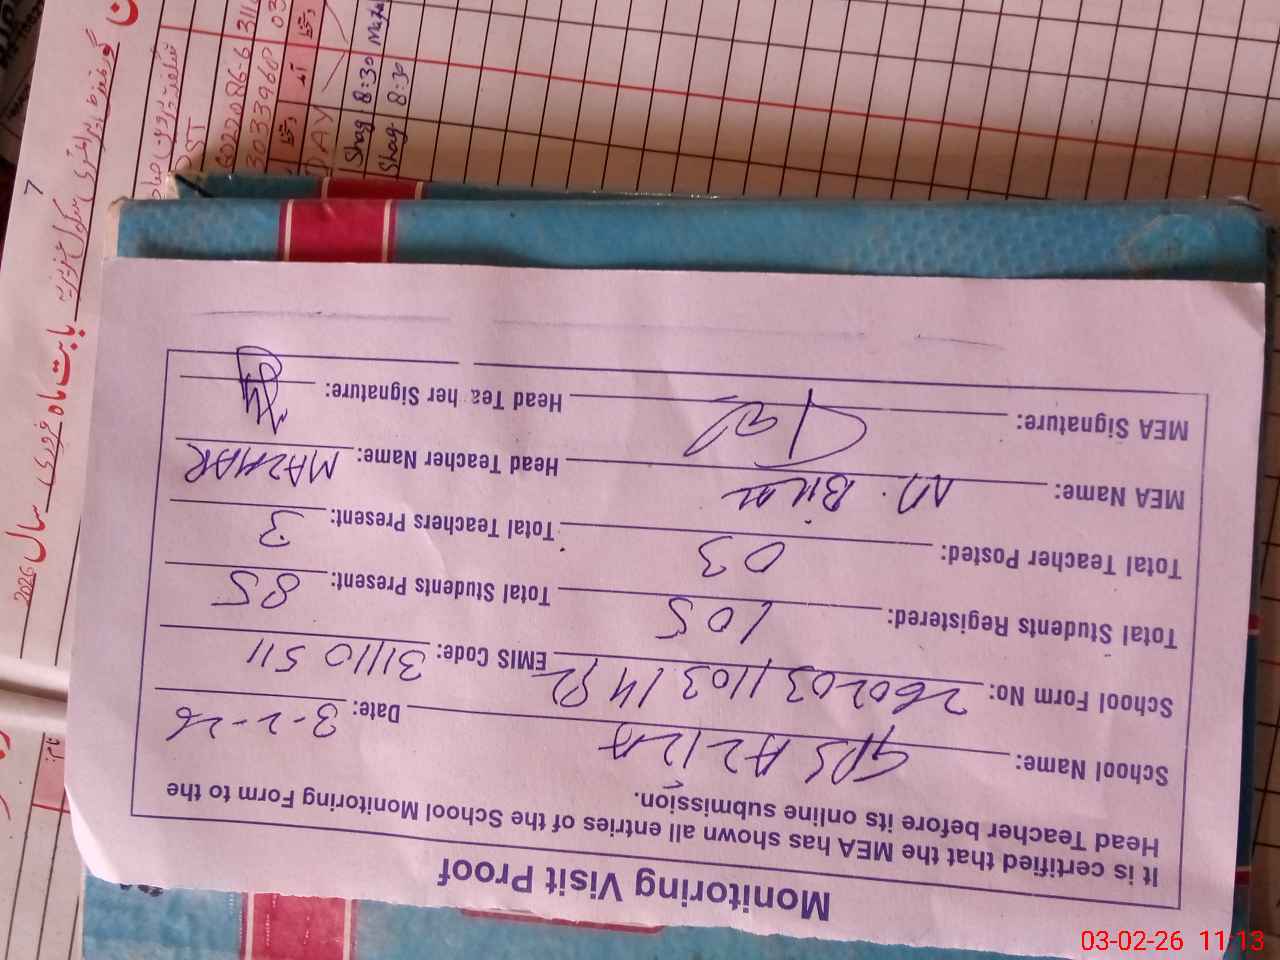 Monitoring Visit Proof
It is certified that the MEA has shown all entries of the School Monitoring Form to the
Head Teacher before its online submission.
School Name: GPS AZIZA Date: 3-2-26
School Form No: 26020311031482 EMIS Code: 31110511
Total Students Registered: 105 Total Students Present: 85
Total Teacher Posted: 03 Total Teachers Present: 3
MEA Name: M. Bilal Head Teacher Name: MAZHAR
MEA Signature: Head Teacher Signature:
گورنمنٹ پرائمری سکول عزیزیہ بابت ماہ فروری سال 2026
7
PST
DAY
Shag 8:30
Shag 8:30
03-02-26 11:13